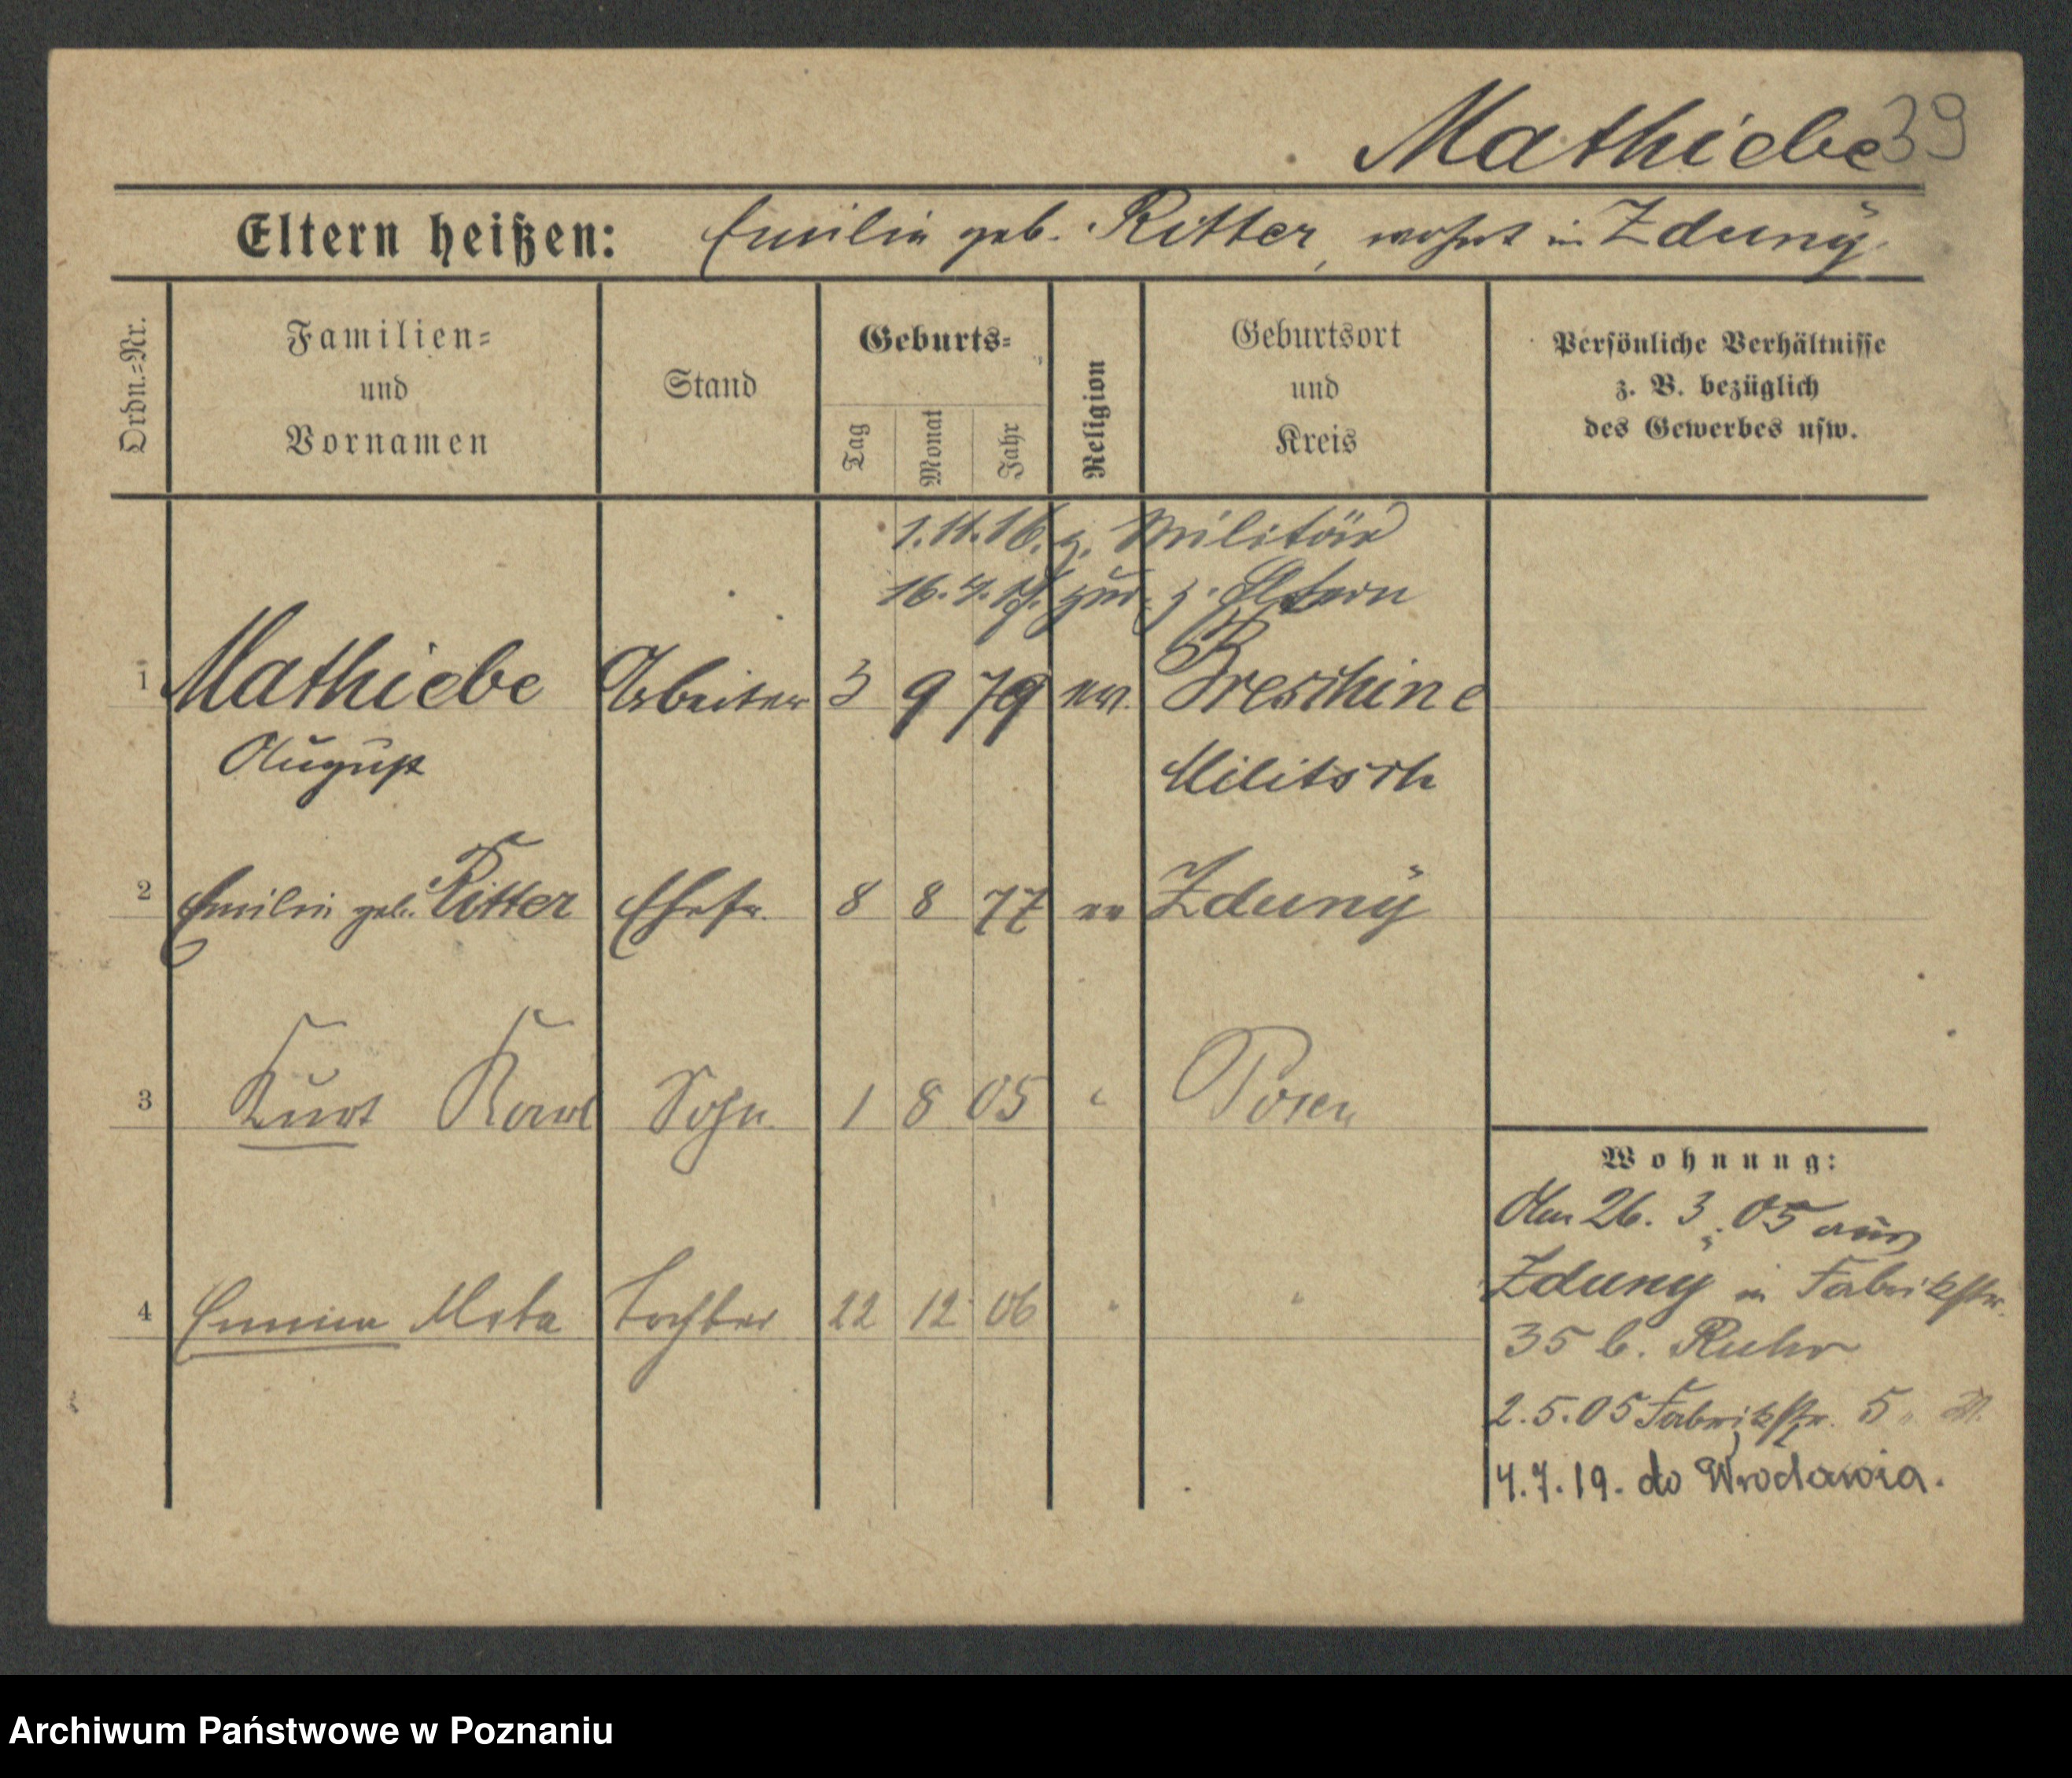 Mathiebe 39
Eltern heißen: Emilie geb. Ritter, wohnt in Zduny.
Ordn.=Nr.
Familien=
und
Vornamen
Stand
Geburts=
Tag
Monat
Jahr
Religion
Geburtsort
und
Kreis
Persönliche Verhältnisse
z. B. bezüglich
des Gewerbes usw.
1.11.16. z. Militär
zur. z. Eltern
1 Mathiebe Arbeiter 3 9 79 ev. Breschine
August Militsch
2 Emilie geb. Ritter Ehefr. 8 8 77 ev Zduny
3 Kurt Karl Sohn 1 8 05 " Posen
4 Emma Meta Tochter 22 12 06 " "
Wohnung:
Am 26. 3. 05 aus
Zduny in Fabrikstr.
35 b. Ruhr
2.5.05 Fabrikstr. 5
4.7.19. do Wrocławia.
Archiwum Państwowe w Poznaniu